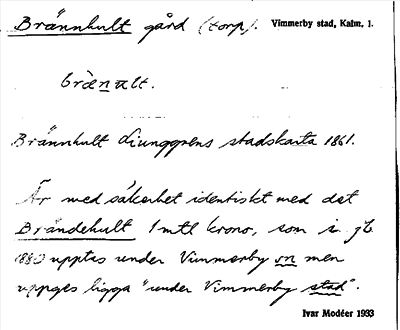 Brännhult gård (torp). Vimmerby stad, Kalm. l.
bränult.
Brännhult Ljunggrens stadskarta 1861.
Är med säkerhet identiskt med det
Brändehult 1 mtl krono, som i jb
1880 upptas under Vimmerby sn men
uppges ligga "under Vimmerby stad".
Ivar Modéer 1933